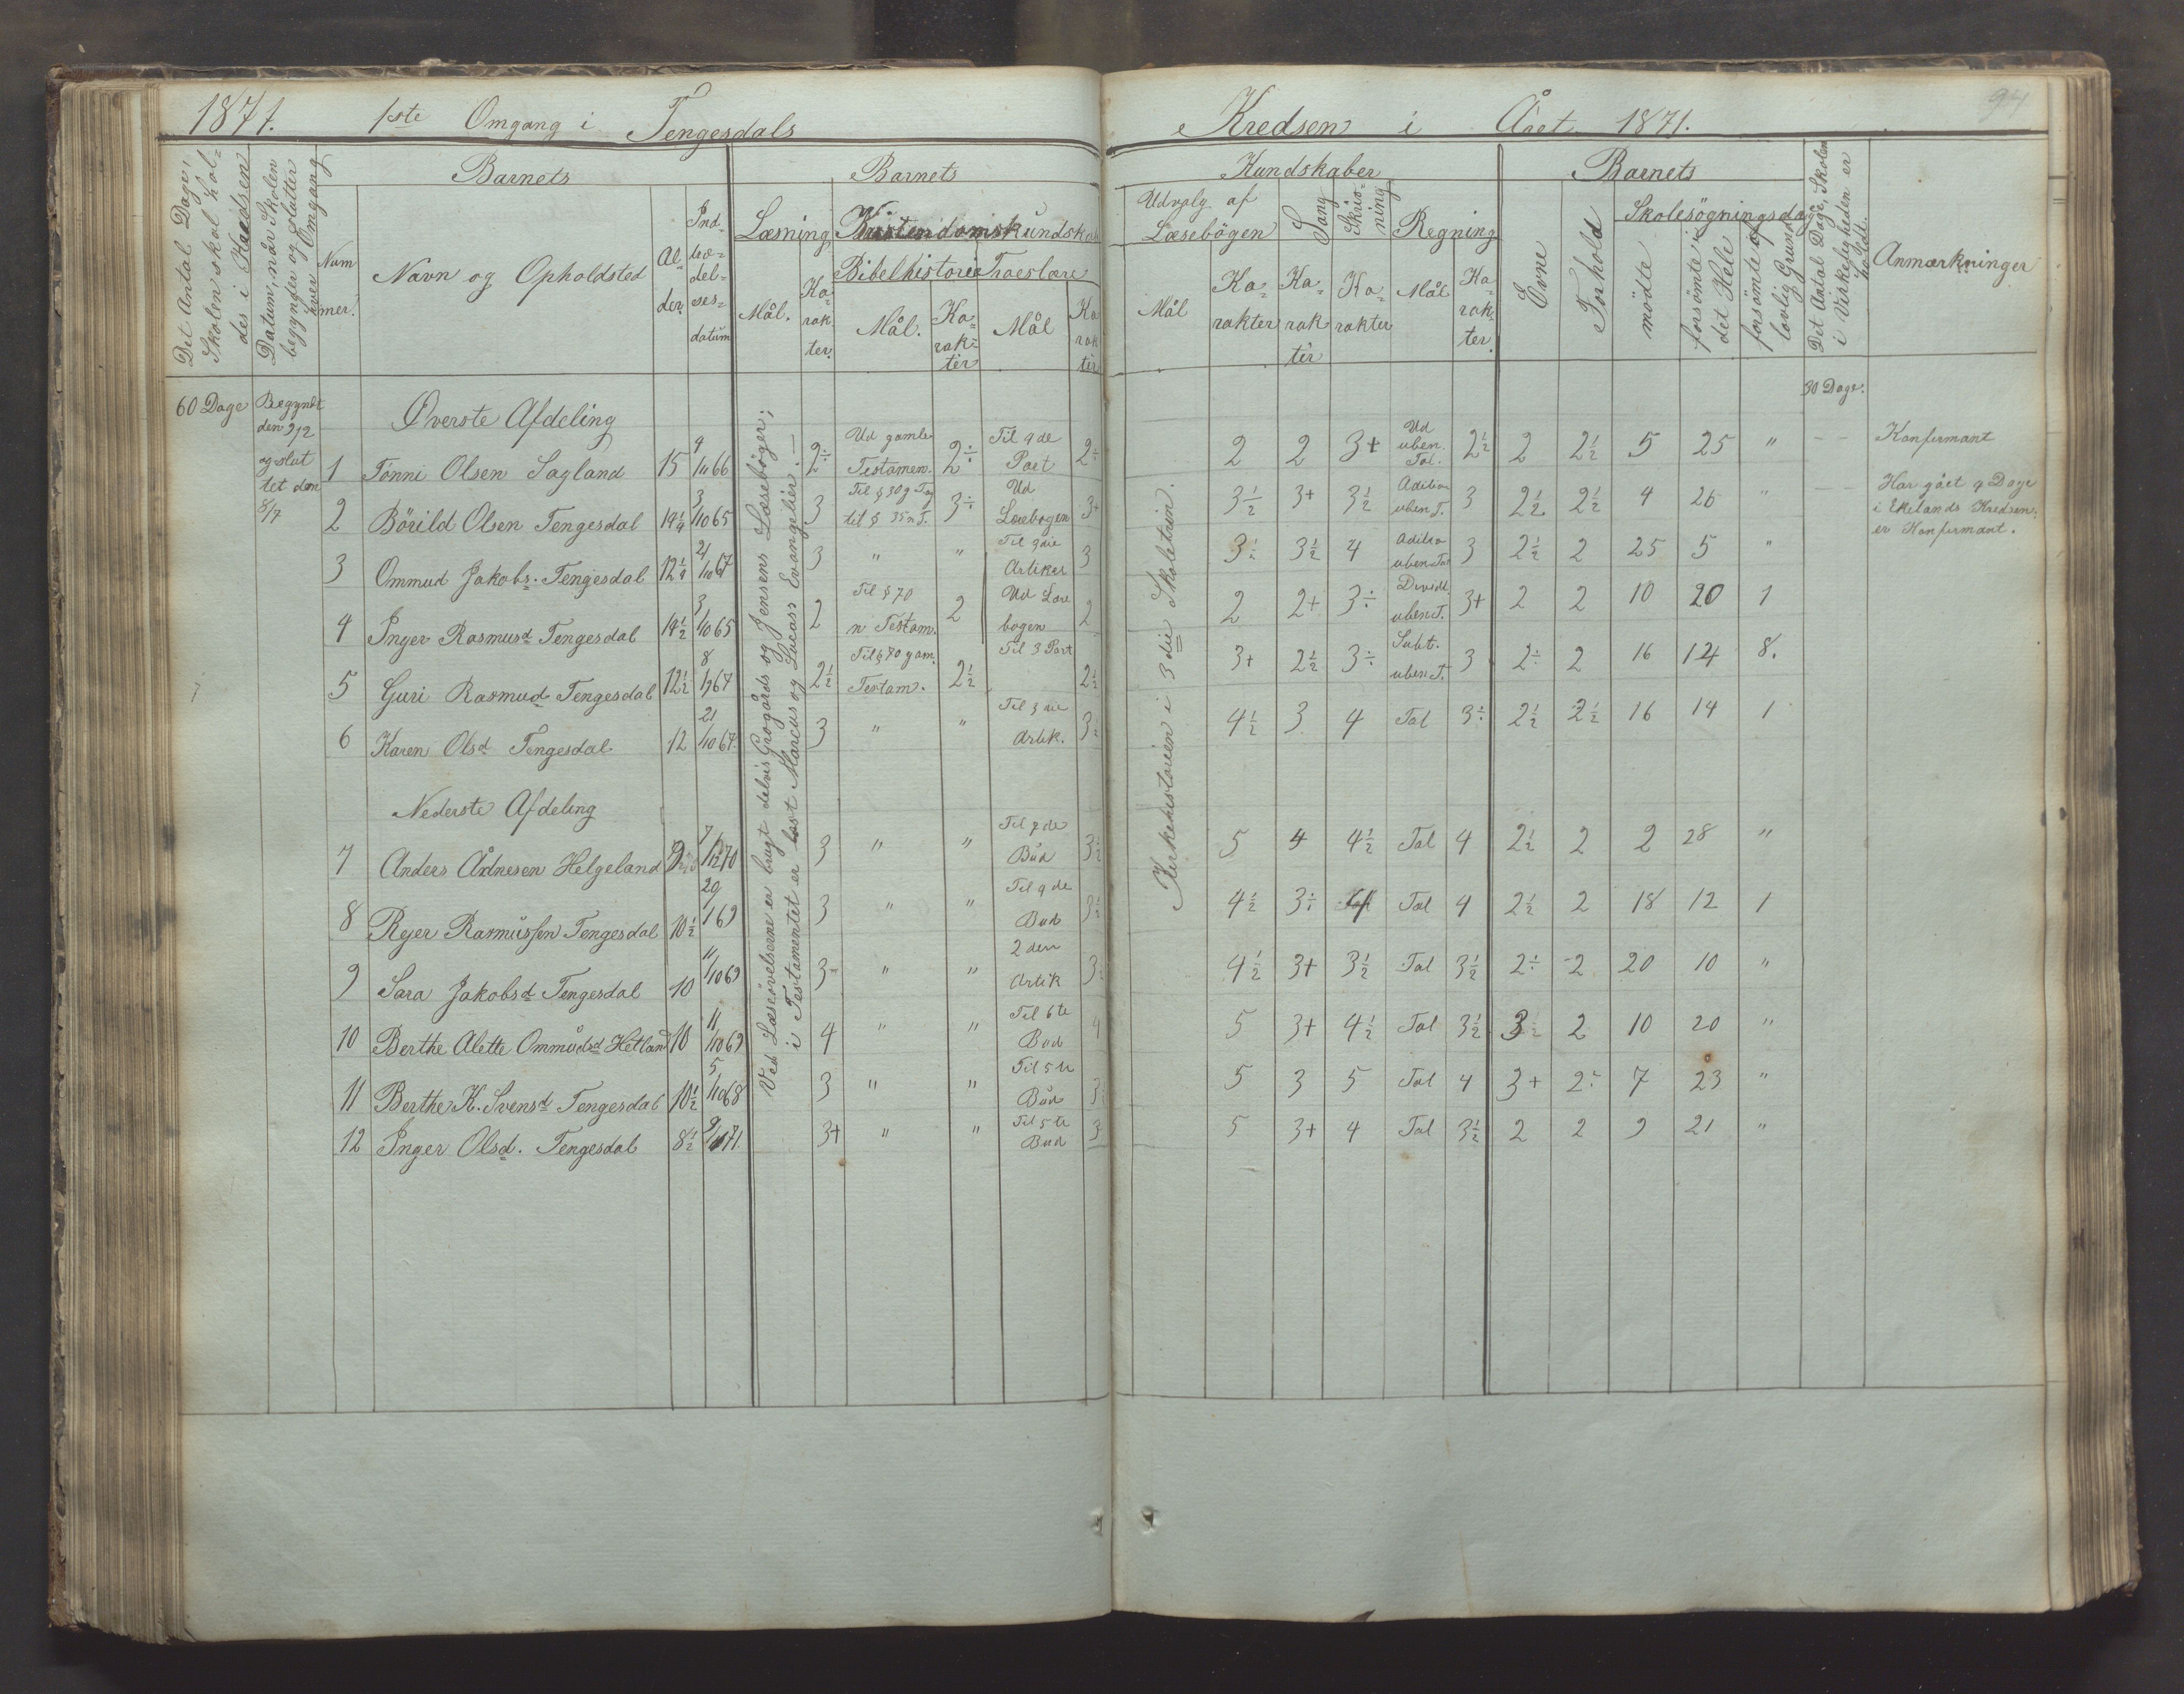 1871. 1ste Omgang i Tengesdals Kredsen i Året 1871.
94
Det Antal Dage, Skolen skal holdes i Kredsen
Datum, når Skolen begynder og slutter hver Omgang
Nummer.
Barnets
Navn og Opholdsted
Alder.
Indtrædelsesdatum
Barnets
Læsning
Mål. Karakter.
Kristendomskundskab
Bibelhistorie
Mål. Karakter
Troeslære
Mål Karakter
Kundskaber
Udvalg af Læsebögen
Mål Karakter
Sang
Karakter
Skrivning
Karakter
Regning
Mål Karakter.
Barnets
Evne
Forhold
Skolesögningsdage
mödte
forsömte i det Hele
forsömte af lovlig Grund
Det Antal Dage, Skolen i Virkeligheden er holdt.
Anmærkninger
60 Dage
Begyndt den 9/2 og sluttet den 8/7
30 Dage.
Ved Læseövelserne er brugt delvis Grogårds og Jensens Læsebøger;
i Testamentet er læst Marcus og Lucass Evangelier.—
Kirkehistorien i 3die Skoletrin.
Øverste Afdeling
1 Tönni Olsen Sagland 15 4/10 66 2÷ Ud gamle Testamen. 2÷ Til 4de Part 2÷ 2 2 3+ Ud uben. Tal. 2½ 2 2½ 5 25 " Konfirmant
2 Börild Olsen Tengesdal 14¼ 3/10 65 3 Til § 30 g Tog til § 35 n T. 3÷ Ud Lærebogen 3+ 3½ 3+ 3½ Adition uben T. 3 2½ 2½ 4 26 " Har gået 4 Dage i Ekelands Kredsen. er Konfirmant.
3 Ommud Jakobs. Tengesdal 12¼ 21/10 67 3 " " Til 3die Artikel 3 3÷ 3½ 4 Adition uben Tal 3 2½ 2 25 5 "
4 Inger Rasmusd Tengesdal 14½ 3/10 65 2 Til § 70 n Testam. 2 Ud Lærebogen 2 2 2+ 3÷ Divid. uben T. 3+ 2 2 10 20 1
5 Guri Rasmusd Tengesdal 12½ 8/1 67 2½ Til § 70 gam. Testam. 2½ Til 3 Part 2½ 3+ 2½ 3÷ Subt. uben T. 3 2÷ 2 16 14 8.
6 Karen Olsd Tengesdal 12 21/10 67. 3 " " Til 3die Artik. 3÷ 4½ 3 4 Tal 3÷ 2½ 2½ 16 14 1
Nederste Afdeling
7 Anders Ådnesen Helgeland 9 7/12 70 3 " " Til 7de Bud 3½ 5 4 4½ Tal 4 2½ 2 2 28 "
8 Reier Rasmussen Tengesdal 10½ 29/1 69 3 " " Til 4de Bud 3½ 4½ 3÷ 4 Tal 4 2½ 2 18 12 1
9 Sara Jakobsd Tengesdal 10 11/10 69 3÷ " " 2den Artik 3÷ 4½ 3+ 3½ Tal 3½ 2÷ 2 20 10 "
10 Berthe Alette Ommudsd Hetland 10 11/10 69 4 " " Til 6te Bud 4 5 3+ 4½ Tal 3½ 3 2 10 20 "
11 Berthe K. Svensd Tengesdal 10½ 5/10 68 3 " " Til 5te Bud 3÷ 5 3 5 Tal 4 3+ 2÷ 7 23 "
12 Inger Olsd. Tengesdal 8½ 71. 3+ " " Til 5te Bud 3 5 3+ 4 Tal 3½ 2 2 9 21 "